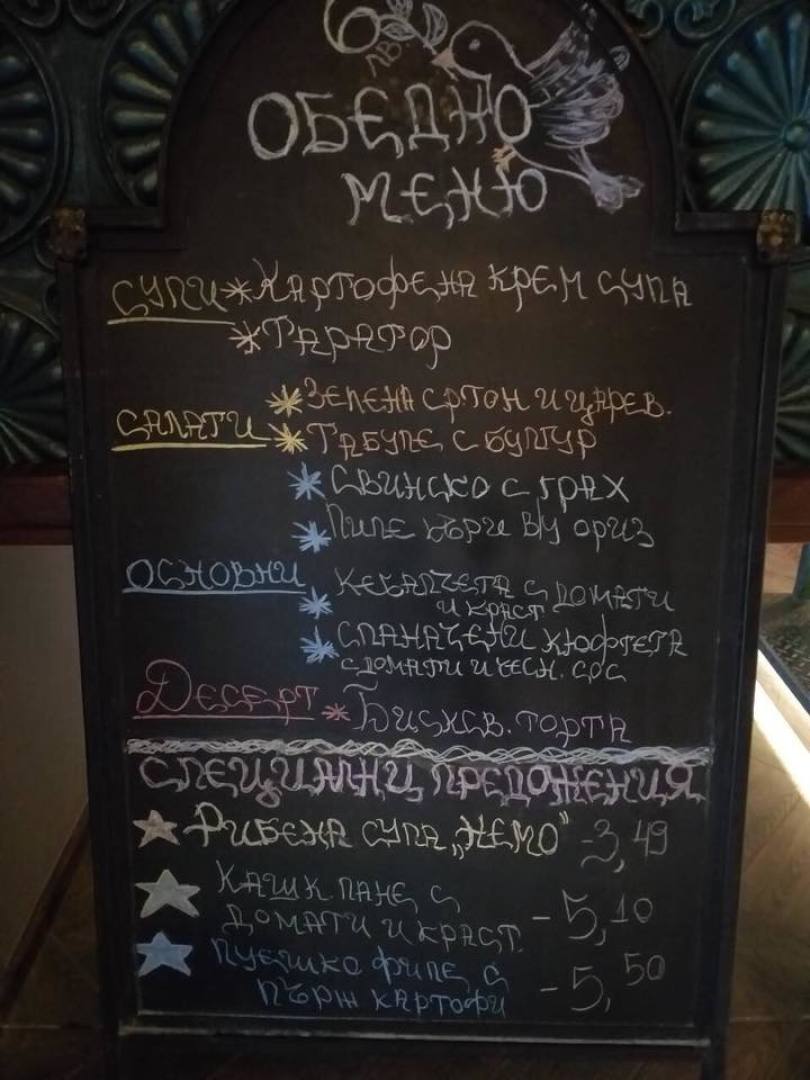 6 лв.
ОБЕДНО
МЕНЮ
СУПИ * КАРТОФЕНА КРЕМ СУПА
* ТАРАТОР
* ЗЕЛЕНА С Р.ТОН И ЦАРЕВ.
САЛАТИ * ТАБУЛЕ С БУЛГУР
* СВИНСКО С ГРАХ
* ПИЛЕ КЪРИ В/У ОРИЗ
ОСНОВНИ
* КЕБАПЧЕТА С ДОМАТИ
И КРАСТ.
* СПАНАЧЕНИ КЮФТЕТА
С ДОМАТИ И ЧЕСН. СОС
ДЕСЕРТ * БИСКВ. ТОРТА
СПЕЦИАЛНИ ПРЕДЛОЖЕНИЯ
РИБЕНА СУПА „НЕМО" - 3,49
КАШК. ПАНЕ С
ДОМАТИ И КРАСТ. - 5,10
ПУЕШКО ФИЛЕ С
ПЪРЖ КАРТОФИ - 5,50